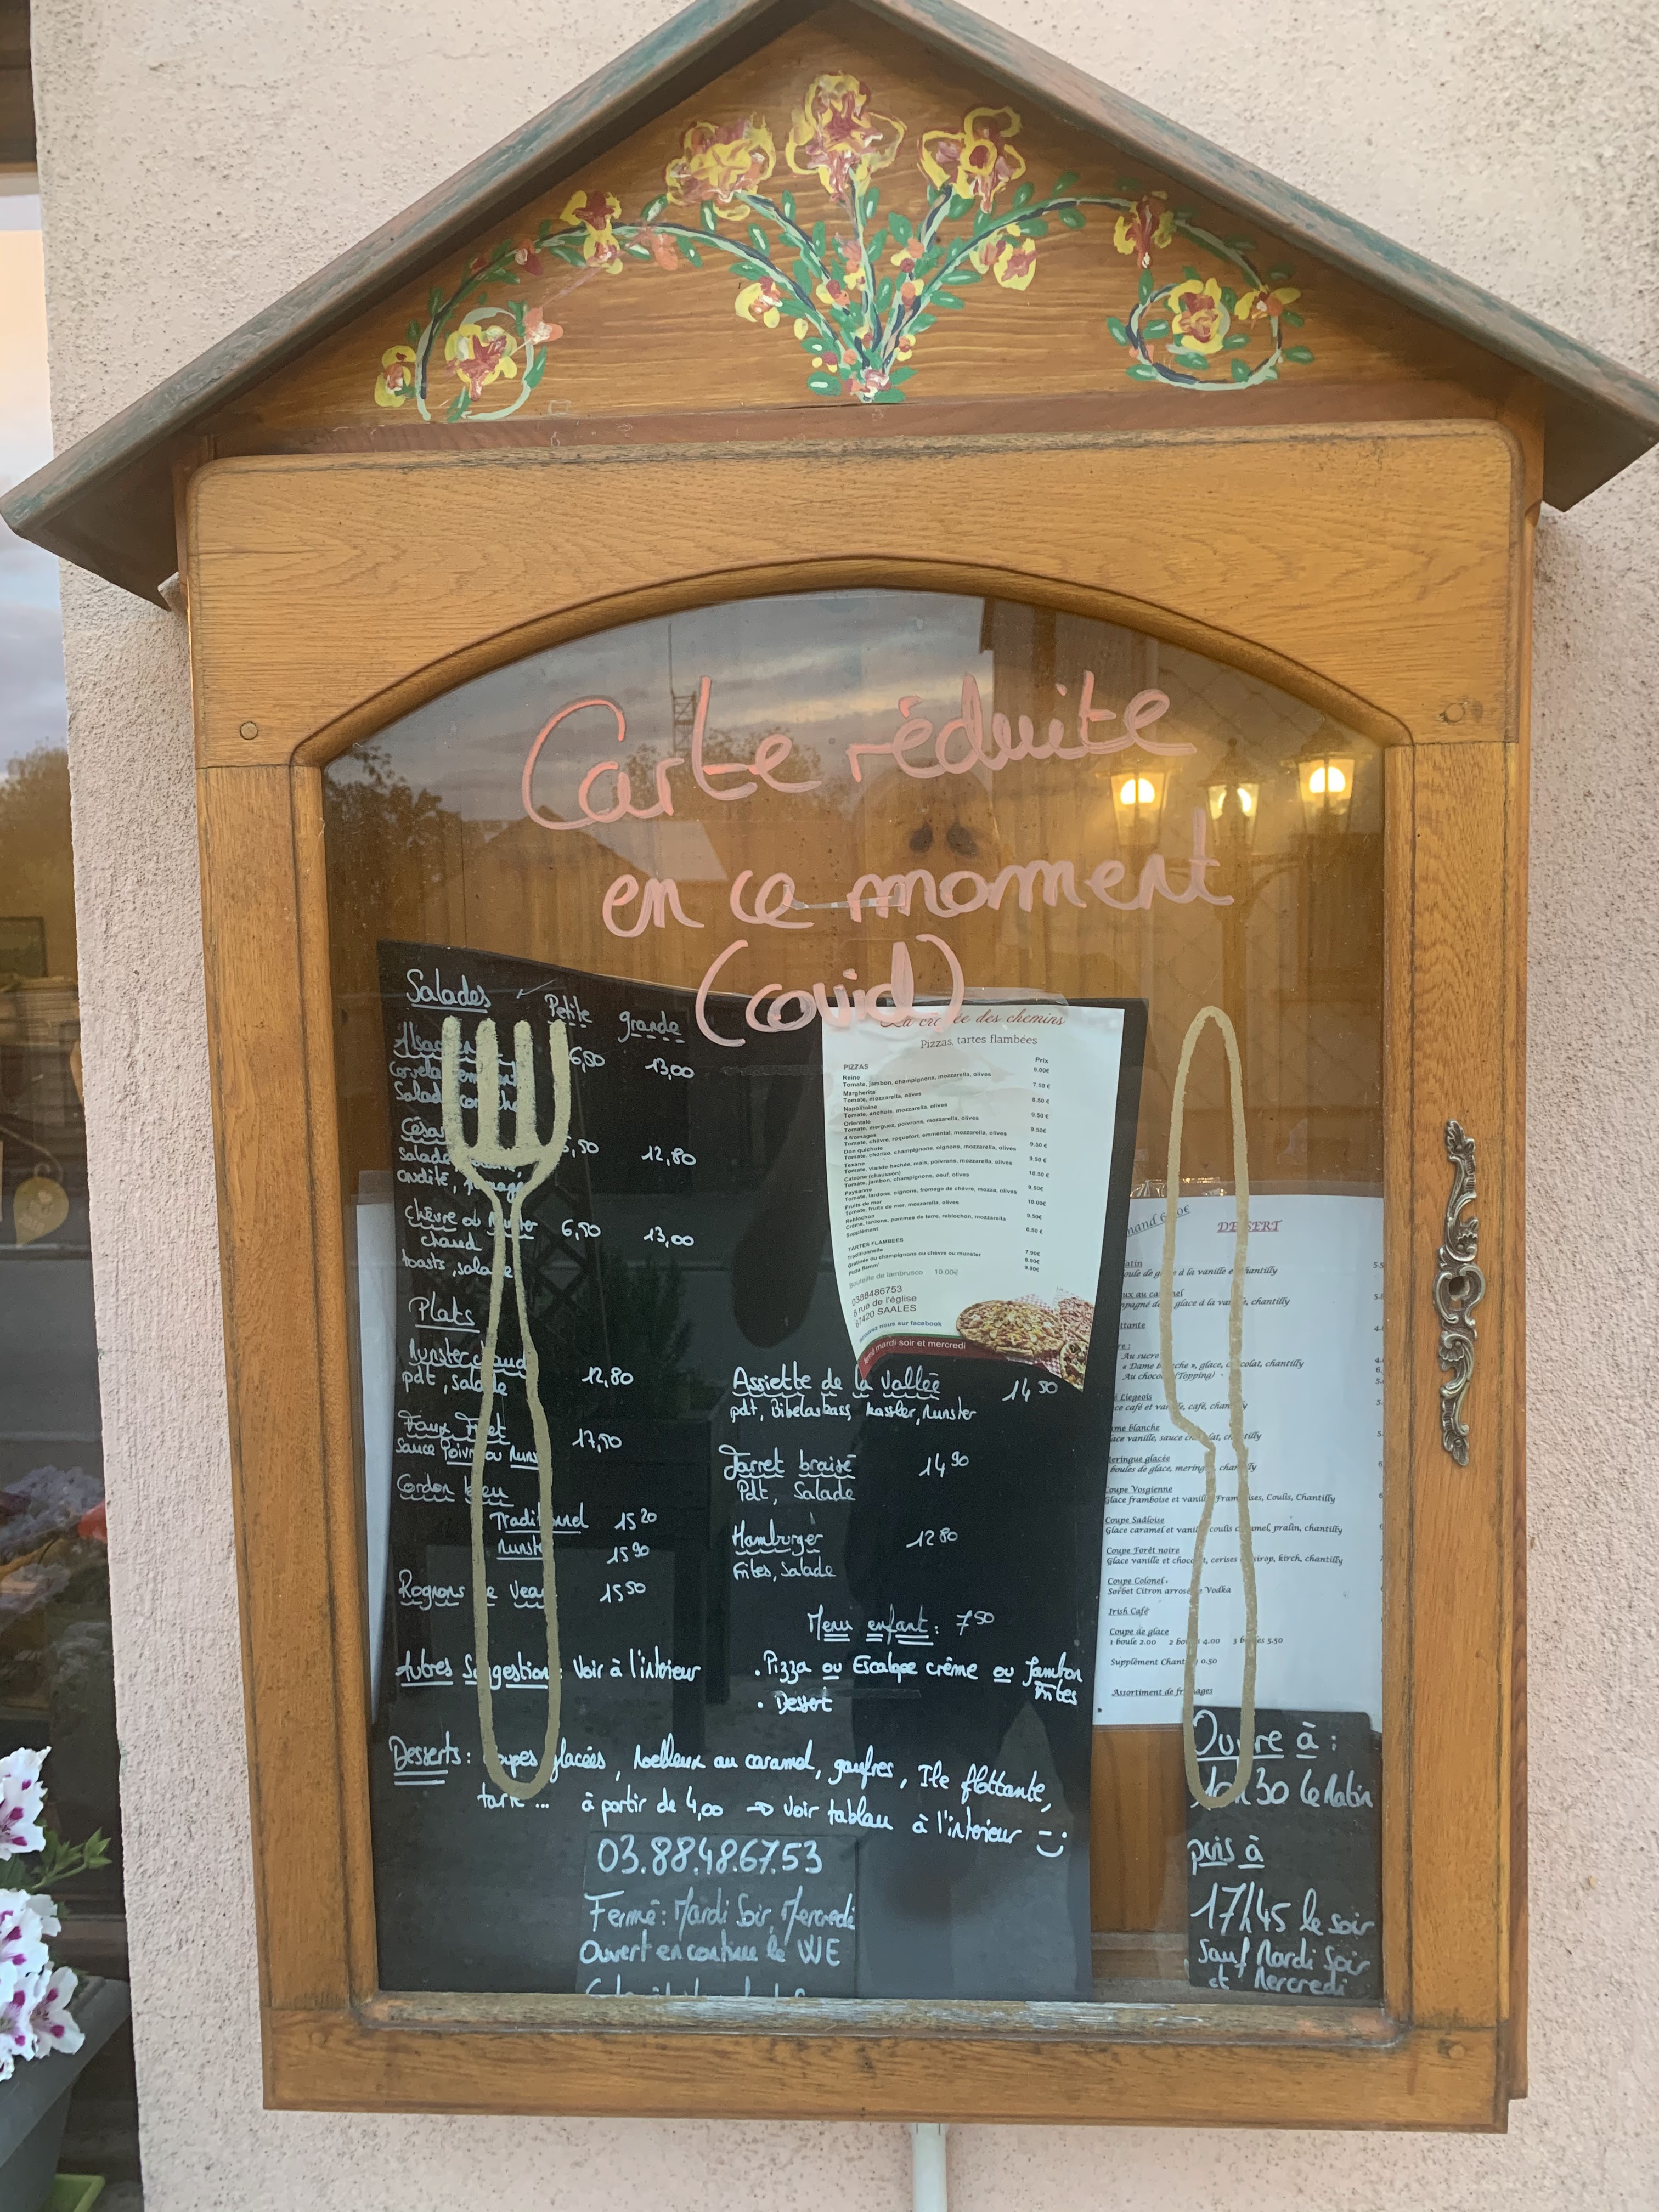 Carte réduite
en ce moment
(covid)
Salades
Petite grande
6,80 13,00
César
5,50 12,80
Salade
crudité, fromage
Chèvre ou Munster 6,50 13,00
chaud
toasts, salade
Plats
Munster chaud
pdt, salade 12,80
Faux Filet
Sauce Poivre ou Munster 17,50
Cordon bleu
Traditionnel 15 20
Munster 15 90
Rognons de Veau 15 50
Autres Suggestions: Voir à l'intérieur
Assiette de la Vallée 14 50
pdt, Bibelaskass, kassler, Munster
Jarret braisé 14 90
Pdt, Salade
Hamburger 12 80
Frites, Salade
Menu enfant: 7 50
. Pizza ou Escalope crême ou Jambon
Frites
. Dessert
Desserts: Coupes glacées, Moelleux au caramel, gaufres, Ile flottante,
tarte... à partir de 4,00 → Voir tableau à l'intérieur
03.88.48.67.53
Fermé: Mardi Soir, Mercredi
Ouvert en continu le WE
des chemins
Pizzas, tartes flambées
Prix
PIZZAS
Reine 9.00€
Tomate, jambon, champignons, mozzarella, olives
Margherita 7.50 €
Tomate, mozzarella, olives
Napolitaine 8.50 €
Tomate, anchois, mozzarella, olives
Orientale 9.50 €
Tomate, merguez, poivrons, mozzarella, olives
4 fromages 9.50€
Tomate, chèvre, roquefort, emmental, mozzarella, olives
Don quichote 9.50 €
Tomate, chorizo, champignons, oignons, mozzarella, olives
Texane 9.50 €
Tomate, viande hachée, maïs, poivrons, mozzarella, olives
Calzone (chausson) 10.50 €
Tomate, jambon, champignons, oeuf, olives
Paysanne 9.50€
Tomate, lardons, oignons, fromage de chèvre, mozza, olives
Fruits de mer 10.00€
Tomate, fruits de mer, mozzarella, olives
Reblochon 9.50€
Crème, lardons, pommes de terre, reblochon, mozzarella
Supplément 0.50 €
TARTES FLAMBEES
Traditionnelle 7.00€
Gratinée ou champignons ou chèvre ou munster 8.00€
Pizza flamm' 9.80€
Bouteille de lambrusco 10.00€
0388486753
5 rue de l'église
67420 SAALES
nous sur facebook
fermé mardi soir et mercredi
DESSERT
à la vanille et chantilly
glace à la vanille, chantilly
Au sucre
« Dame blanche », glace, chocolat, chantilly
Au chocolat (Topping)
Liegeois
café et vanille, café, chantilly
blanche
Glace vanille, sauce chocolat, chantilly
Meringue glacée
boules de glace, meringue, chantilly
Coupe Vosgienne
Glace framboise et vanille, Framboises, Coulis, Chantilly
Coupe Sadloise
Glace caramel et vanille, coulis caramel, pralin, chantilly
Coupe Forêt noire
Glace vanille et chocolat, cerises sirop, kirch, chantilly
Coupe Colonel
Sorbet Citron arrosé de Vodka
Irish Café
Coupe de glace
1 boule 2.00 2 boules 4.00 3 boules 5.50
Supplément Chantilly 0.50
Assortiment de fromages
Ouvre à :
10h30 le Matin
puis à
17h45 le soir
Sauf Mardi Soir
et Mercredi